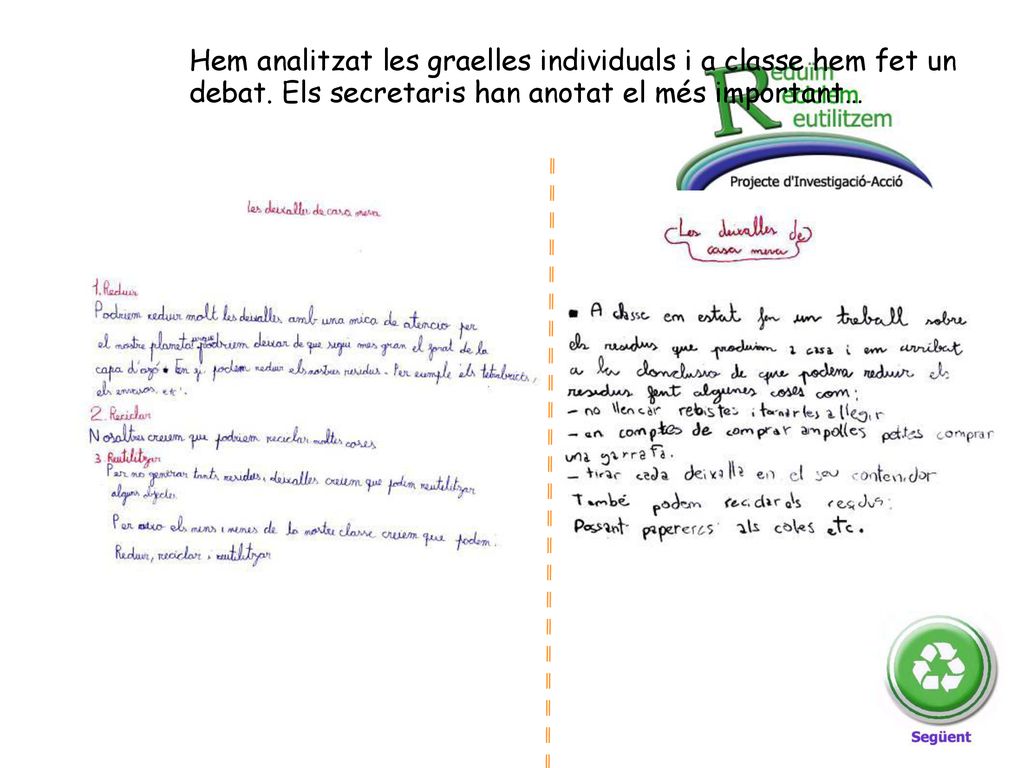 Hem analitzat les graelles individuals i a classe hem fet un
debat. Els secretaris han anotat el més important…
Reduïm
Reciclem
Reutilitzem
Projecte d'Investigació-Acció
Les deixalles de casa meva
1. Reduir
Podriem reduir molt les deixalles amb una mica de atencio per
el nostre planeta perque podriem deixar de que sigui mes gran el forat de la
capa d'ozó. En si podem reduir els nostres residus. Per exmple els tetrabracks,
els envasos, etc.
2. Reciclar
Nosaltres creiem que podriem reciclar moltes coses
3. Reutilitzar
Per no generar tants residus i deixalles creiem que podem reutilitzar
alguns objectes.
Per aixo els nens i nenes de la nostre classe creiem que podem:
Reduir, reciclar i reutilitzar
Les deixalles de
casa meva
A classe em estat fen un treball sobre
els residus que produim a casa i em arribat
a la conclusio de que podem reduir els
residus fent algunes coses com:
- no llençar rebistes i tornarles a llegir
- en comptes de comprar ampolles petites comprar
una garrafa.
- tirar cada deixalla en el seu contenidor
També podem reciclar els residus:
Possant papereres als coles etc.
Següent